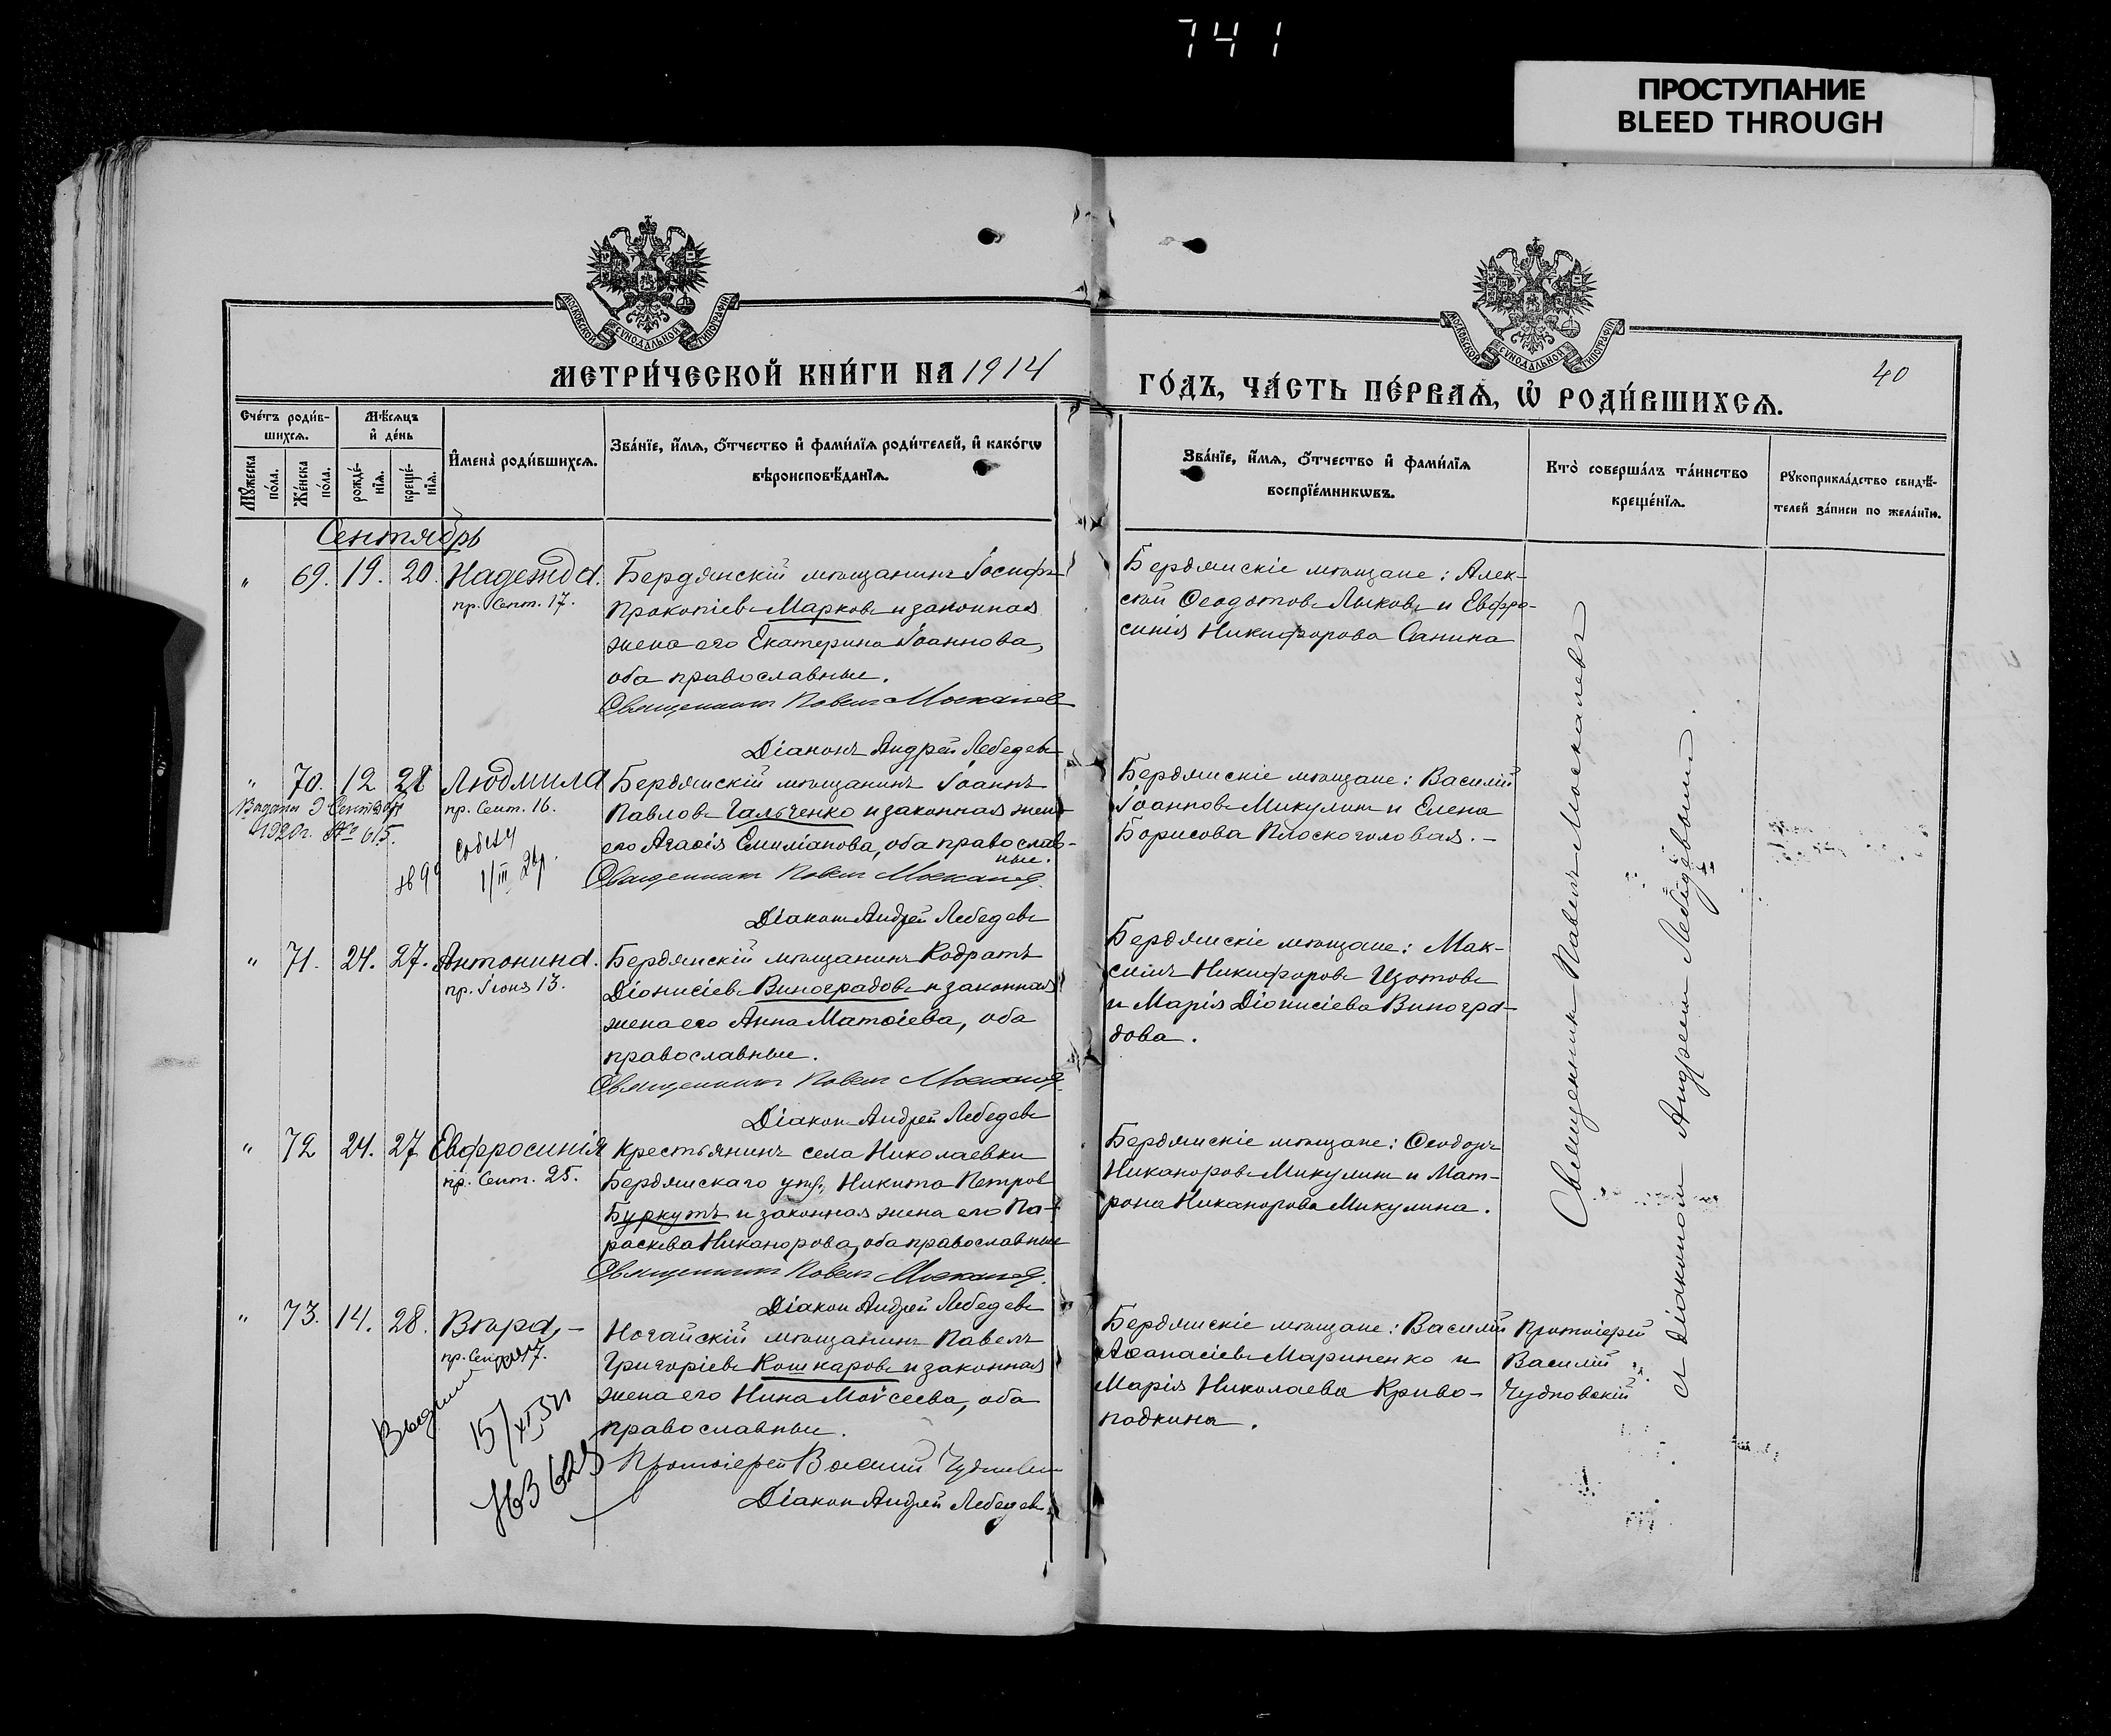 741
ПРОСТУПАНИЕ
BLEED THROUGH
МОСКОВСКОЙ СУНОДАЛЬНОЙ ТИПОГРАФІИ
МОСКОВСКОЙ СУНОДАЛЬНОЙ ТИПОГРАФІИ
МЕТРИ́ЧЕСКОЙ КНИ́ГИ НА 1914
ГО́ДЪ, ЧА́СТЬ ПЕ́РВАѦ, Ѡ҆ РОДИ́ВШИХСѦ.
40
Сче́тъ роди́в-
шихсѧ.
Мѣ́сѧцъ
и҆ де́нь
Мꙋ́жеска
по́ла.
Же́нска
по́ла.
рожде́-
нїѧ.
креще́-
нїѧ.
И҆мена̀ роди́вшихсѧ.
Зва́нїе, и҆́мѧ, ѻ҆́тчество и҆ фами́лїѧ роди́телей, и҆ како́гѡ
вѣроисповѣ́данїѧ.
Зва́нїе, и҆́мѧ, ѻ҆́тчество и҆ фами́лїѧ
воспрїе́мникѡвъ.
Кто̀ соверша́лъ та́инство
креще́нїѧ.
Рꙋкоприкла́дство свидѣ́-
телей за́писи по жела́нїю.
Сентябрь
" 69. 19. 20. Надежда.
пр. Сент. 17.
Бердянскій мѣщанинъ Іосифъ
Прокопіевъ Марковъ и законная
жена его Екатерина Іоаннова,
оба православные.
Священникъ Павелъ Москалевъ
Діаконъ Андрей Лебедевъ
Бердянскіе мѣщане: Алек-
сѣй Ѳеодотовъ Лыковъ и Евфро-
синія Никифорова Санина
" 70. 12 28 Людмила
пр. Сент. 16.
Выдана 9 Сентября
1920г. № 615.
Бердянскій мѣщанинъ Іоаннъ
Павловъ Гальченко и законная жена
его Агаѳія Емиліанова, оба православ-
ные.
Священникъ Павелъ Москалевъ
Діаконъ Андрей Лебедевъ
Бердянскіе мѣщане: Василій
Іоанновъ Микулинъ и Елена
Борисова Плоскоголовая. -
" 71. 24. 27. Антонина.
пр. Іюня 13.
Бердянскій мѣщанинъ Кодратъ
Діонисіевъ Виноградовъ и законная
жена его Анна Матѳіева, оба
православные.
Священникъ Павелъ Москалевъ
Діаконъ Андрей Лебедевъ
Бердянскіе мѣщане: Мак-
симъ Никифоровъ Изотовъ
и Марія Діонисіева Виногра-
дова.
" 72 24. 27 Евфросинія
пр. Сент. 25.
Крестьянинъ села Николаевки
Бердянскаго уѣз., Никита Петровъ
Буркутъ и законная жена его Па-
раскева Никанорова, оба православные
Священникъ Павелъ Москалевъ
Діаконъ Андрей Лебедевъ
Бердянскіе мѣщане: Ѳеодоръ
Никаноровъ Микулинъ и Мат-
рона Никанорова Микулина.
" 73. 14. 28. Вѣра, -
пр. Сент. 17.
15/XI
Ногайскій мѣщанинъ Павелъ
Григоріевъ Кошкаровъ и законная
жена его Нина Моѵсеева, оба
православные.
Протоіерей Василій Чудновскій
Діаконъ Андрей Лебедевъ
Бердянскіе мѣщане: Василій
Аѳанасіевъ Мариненко и
Марія Николаева Криво-
падкина.
Протоіерей
Василій
Чудновскій
Священникъ Павелъ Москалевъ
и Діакономъ Андреемъ Лебедевымъ.